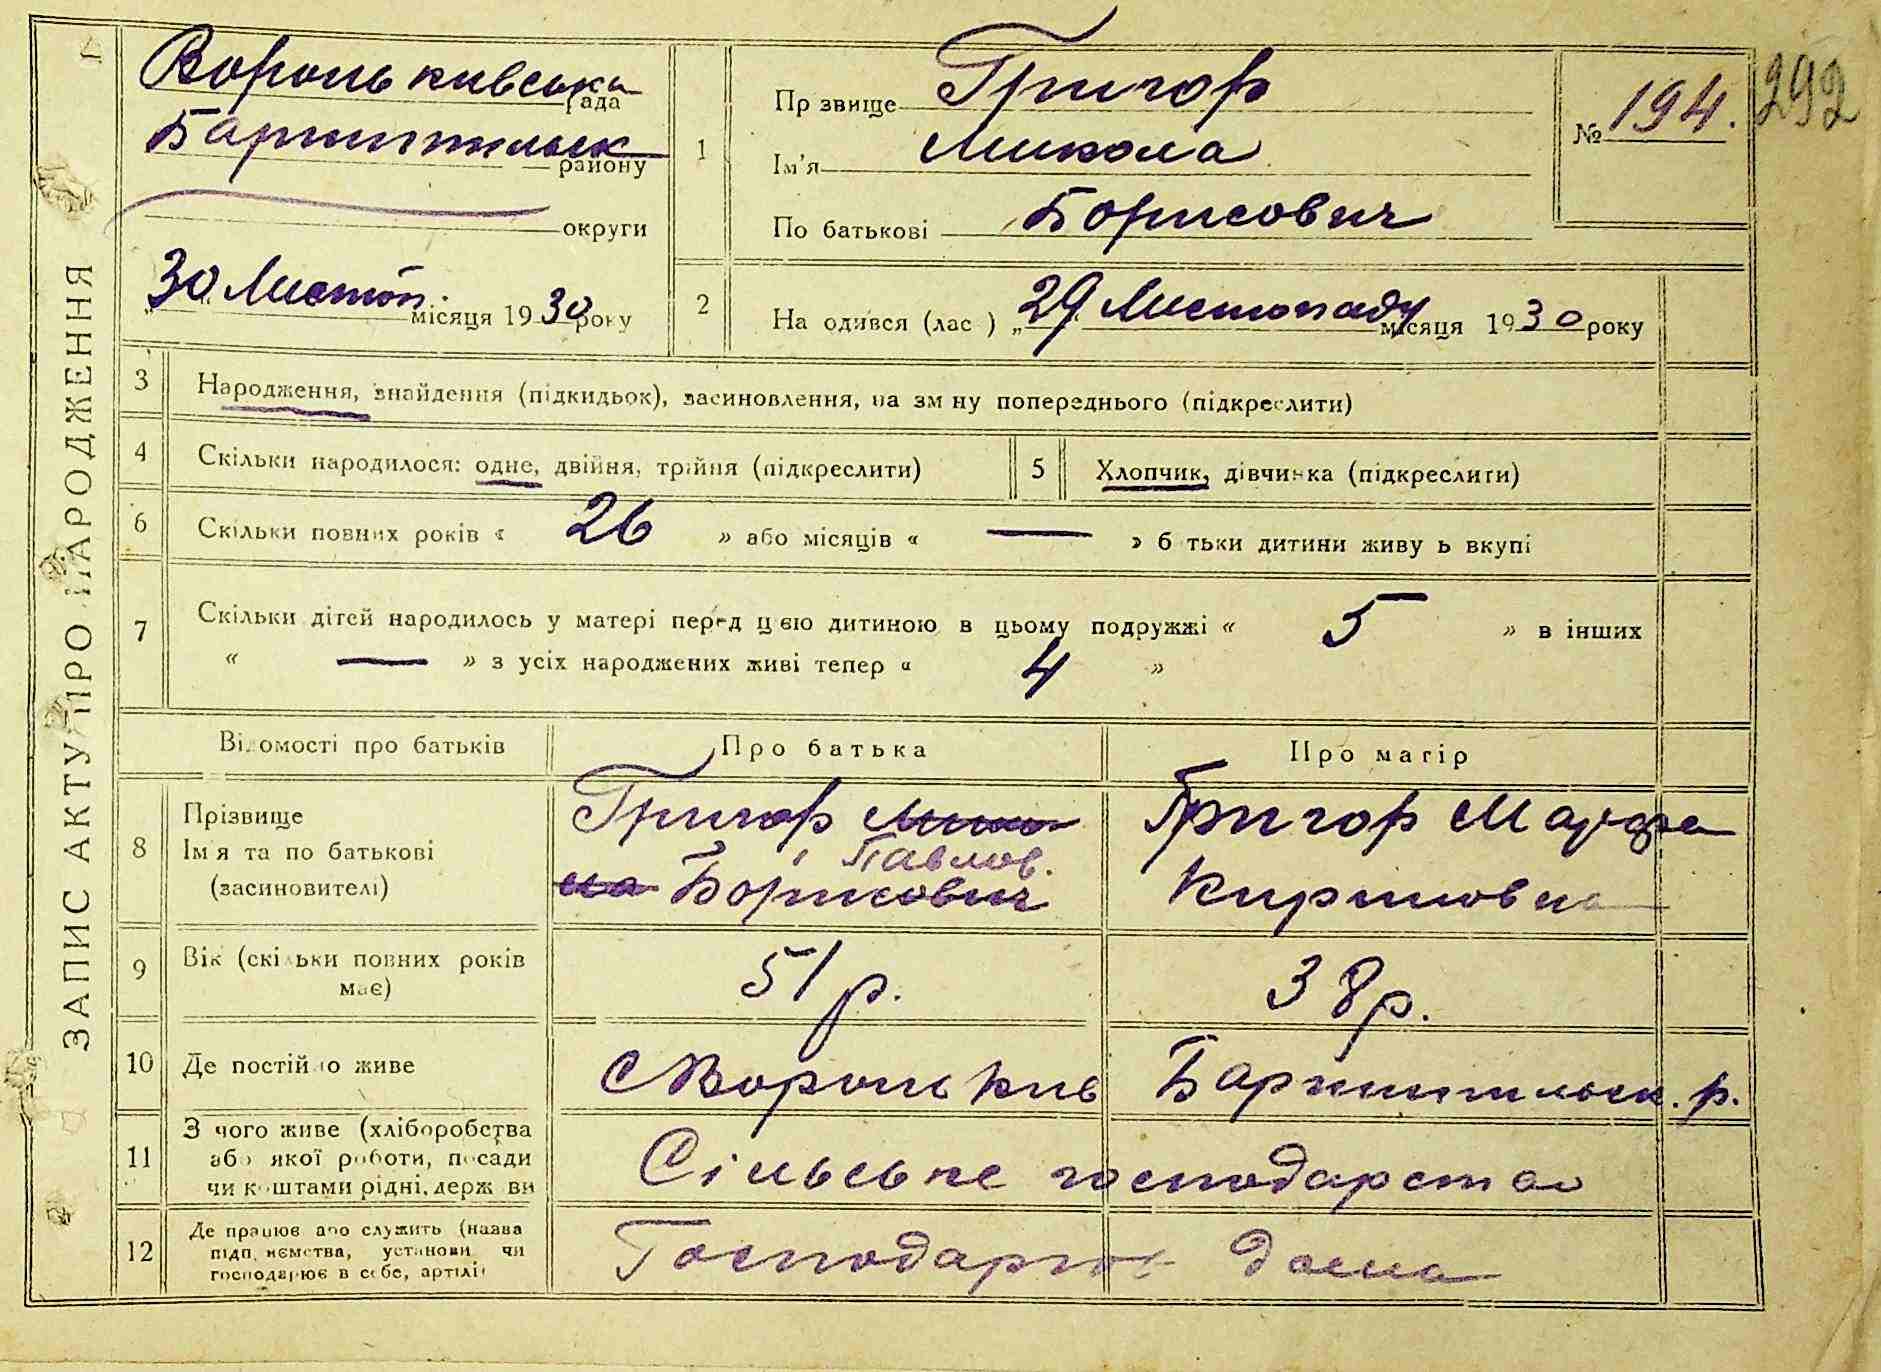 ЗАПИС АКТУ ПРО НАРОДЖЕННЯ
Вороньківська рада
Баришпільськ району
округи
30 Листоп. місяця 1930 року
1
Пр звище Григор
Ім'я Микола
По батькові Борисович
№ 194.
292
2
На одився (лас ) „29 Листопаду місяця 1930 року
3 Народження, знайдення (підкидьок), засиновлення, на зм ну попереднього (підкреслити)
4 Скільки народилося: одне, двійня, трійня (підкреслити)
5 Хлопчик, дівчинка (підкреслити)
6 Скільки повних років « 26 » або місяців « — » б тьки дитини живу ь вкупі
7 Скільки дітей народилось у матері перед цією дитиною в цьому подружжі « 5 » в інших
« — » з усіх народжених живі тепер « 4 »
Відомості про батьків Про батька Про матір
8 Прізвище
Імя та по батькові
(засиновителі)
Григор Мико
ла Борисович
Павлов.
Григор Марфа
Кириловна
9 Вік (скільки повних років
має)
51 р.
38 р.
10 Де постійно живе
с Вороньків Баришпільськ. р.
11 З чого живе (хліборобства
або якої роботи, посади
чи коштами рідні, держ ви
Сільське господарство
12 Де працює або служить (назва
підп. ємства, установи чи
господарює в себе, артілі
Господарює дома